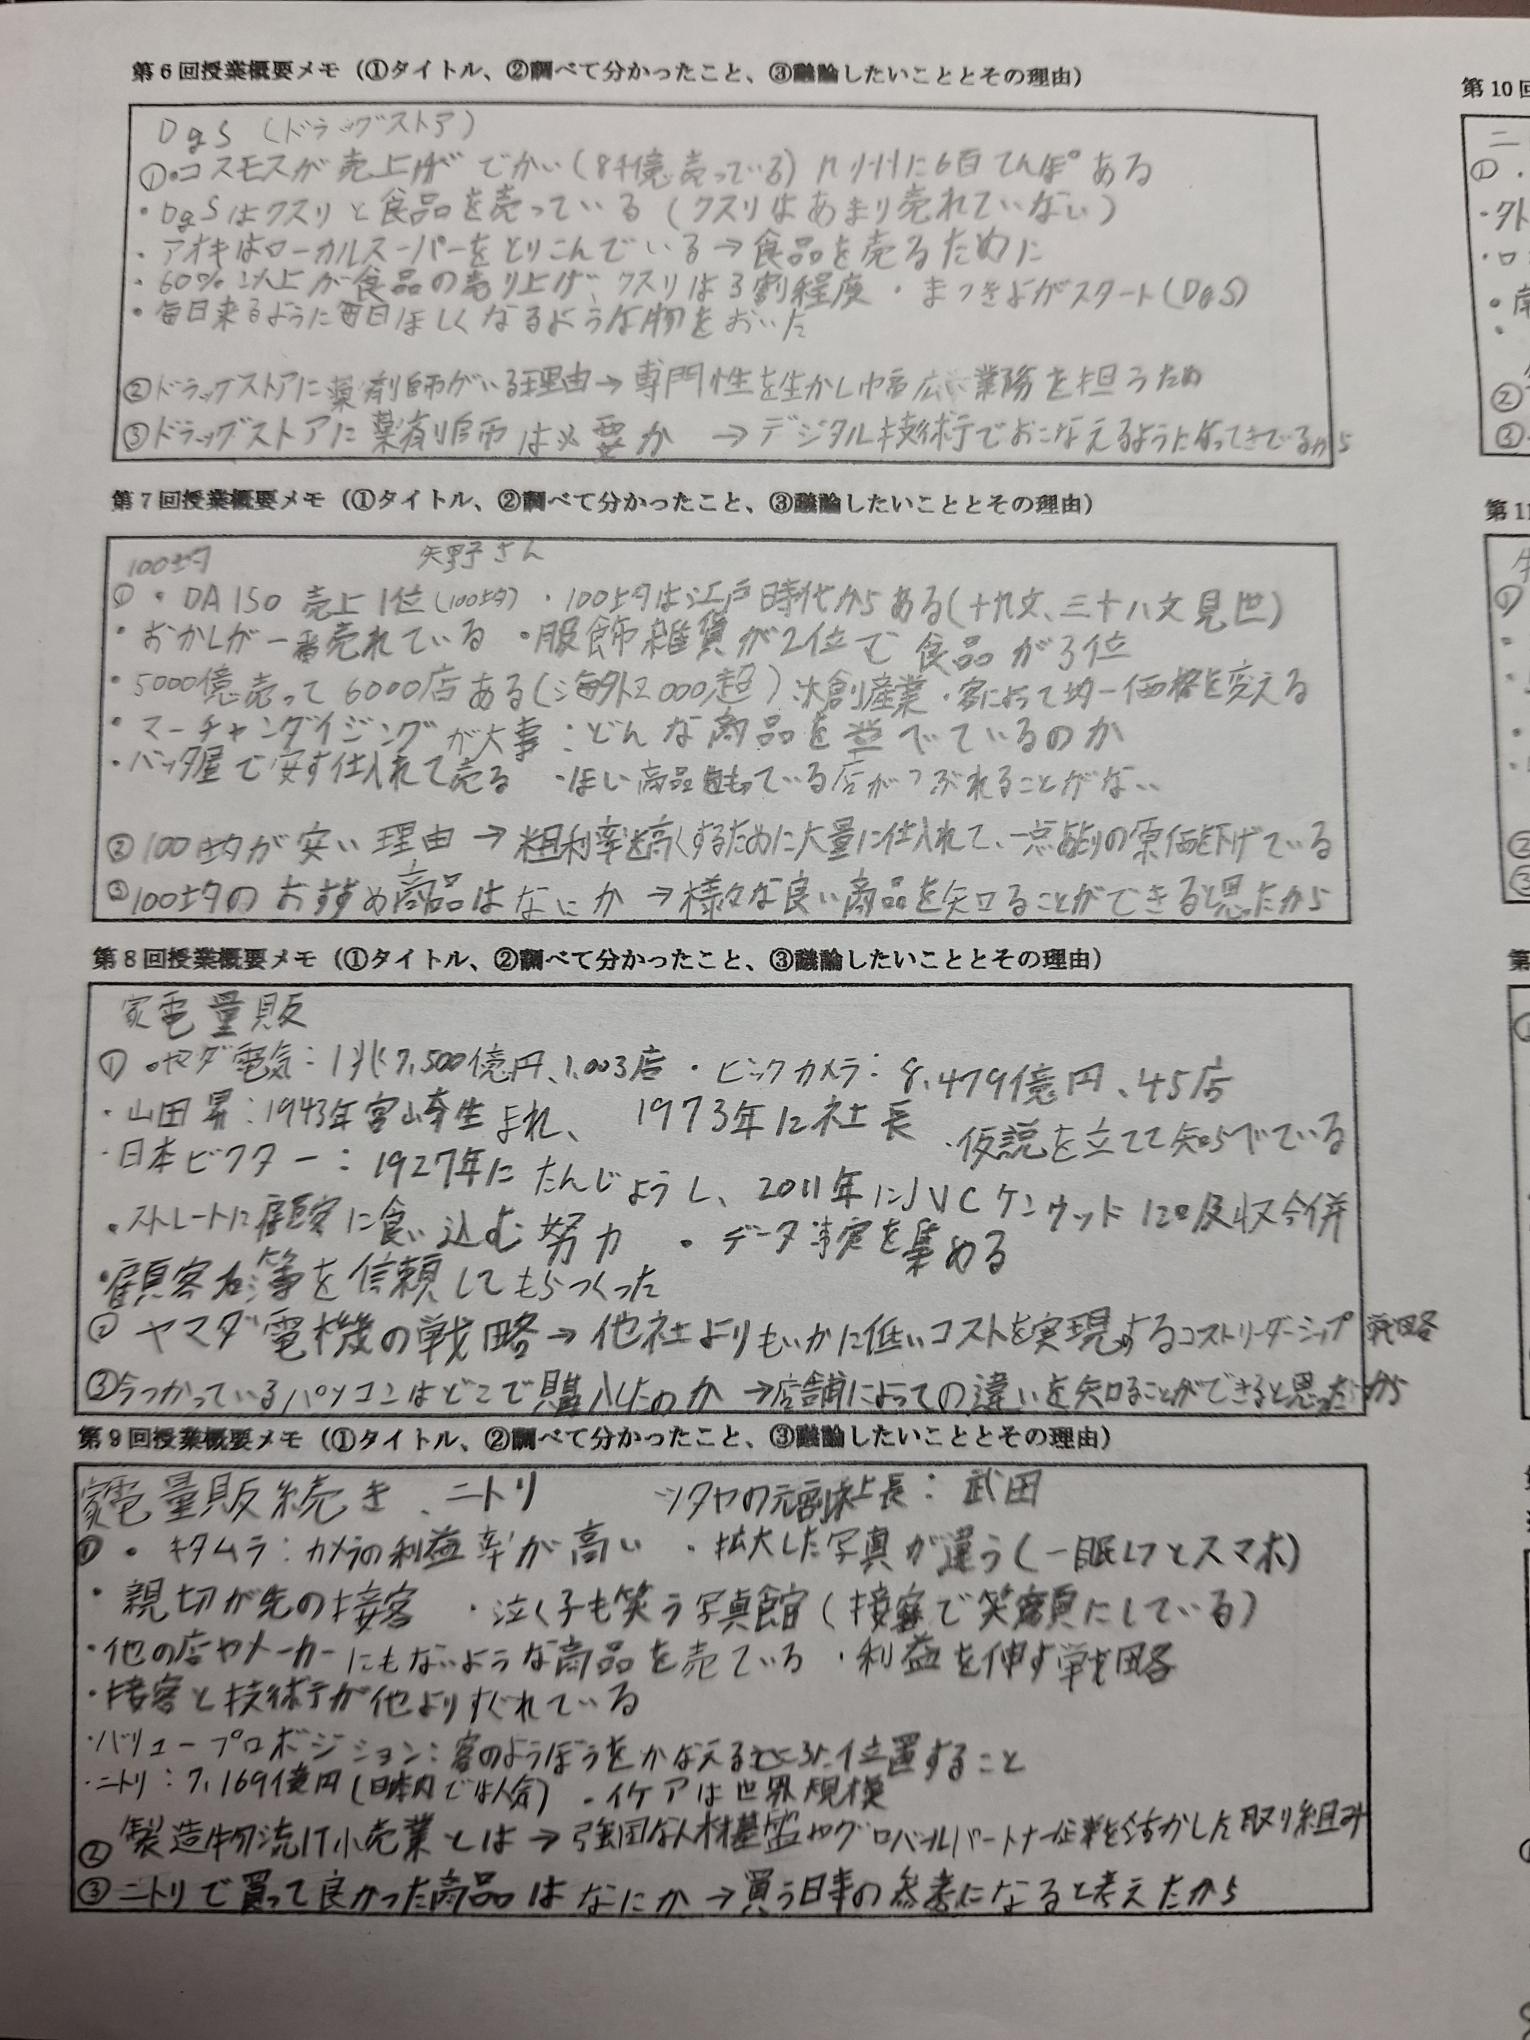 第6回授業概要メモ（①タイトル、②調べて分かったこと、③議論したいこととその理由）
DgS（ドラッグストア）
①・コスモスが売上げがでかい（8千億売っている）九州に6百てんぽある
・DgSはクスリと食品を売っている（クスリはあまり売れていない）
・アオキはローカルスーパーをとりこんでいる→食品を売るために
・60%以上が食品の売り上げ、クスリは3割程度 ・まつきよがスタート（DgS）
・毎日来るように毎日ほしくなるような物をおいた
②ドラッグストアに薬剤師がいる理由→専門性を生かし幅広い業務を担うため
③ドラッグストアに薬剤師は必要か →デジタル技術でおこなえるようになってきているから
第7回授業概要メモ（①タイトル、②調べて分かったこと、③議論したいこととその理由）
100均 矢野さん
①・DAISO 売上1位（100均） ・100均は江戸時代からある（十九文、三十八文見世）
・おかしが一番売れている ・服飾雑貨が2位で 食品が3位
・5000億売って6000店ある（海外2000超）大創産業 ・客によって均一価格を変える
・マーチャンダイジングが大事：どんな商品を並べているのか
・バッタ屋で安す仕入れて売る ・ほしい商品をもっている店がつぶれることがない
②100均が安い理由→粗利率を高くするために大量に仕入れて、一点あたりの原価を下げている
③100均のおすすめ商品はなにか→様々な良い商品を知ることができると思たから
第8回授業概要メモ（①タイトル、②調べて分かったこと、③議論したいこととその理由）
家電量販
①・ヤマダ電気：1兆7,500億円、1,003店 ・ビックカメラ：8,479億円、45店
・山田昇：1943年宮崎生まれ、1973年に社長 ・仮説を立てて知らべている
・日本ビクター：1927年にたんじょうし、2011年にJVCケンウッドに吸収合併
・ストレートに顧客に食い込む努力 ・データ 事実を集める
・顧客名簿を信頼してもらつくった
②ヤマダ電機の戦略→他社よりもいかに低いコストを実現するコストリーダーシップ戦略
③今つかっているパソコンはどこで購入したのか→店舗によっての違いを知ることができると思ったから
第9回授業概要メモ（①タイトル、②調べて分かったこと、③議論したいこととその理由）
家電量販続き、ニトリ シタヤの元副社長：武田
①・キタムラ：カメラの利益率が高い ・拡大した写真が違う（一眼レフとスマホ）
・親切が先の接客 ・泣く子も笑う写真館（接客で笑顔にしている）
・他の店やメーカーにもないような商品を売ている ・利益を伸す戦略
・接客と技術が他よりすぐれている
・バリュープロポジション：客のようぼうをかなえるところに位置すること
・ニトリ：7,169億円（日本内では人気） ・イケアは世界規模
②製造物流IT小売業とは→強固な人材基盤やグローバルパートナー企業を活かした取り組み
③ニトリで買って良かった商品はなにか→買う日事の参考になると考えたから
第10回
第11